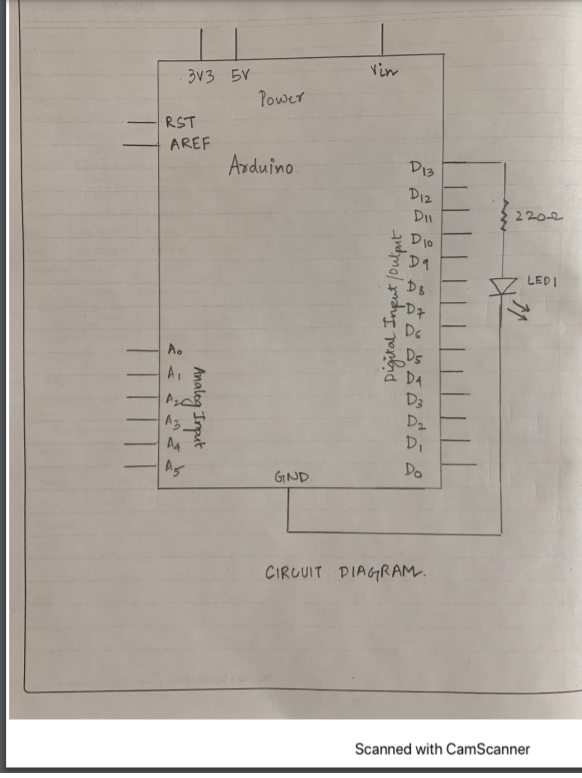 3V3 5V Vin
Power
RST
AREF
Arduino
D13
D12
D11
D10
D9
D8
D7
D6
D5
D4
D3
D2
D1
D0
Digital Input/Output
220Ω
LED1
A0
A1
A2
A3
A4
A5
Analog Input
GND
CIRCUIT DIAGRAM.
Scanned with CamScanner